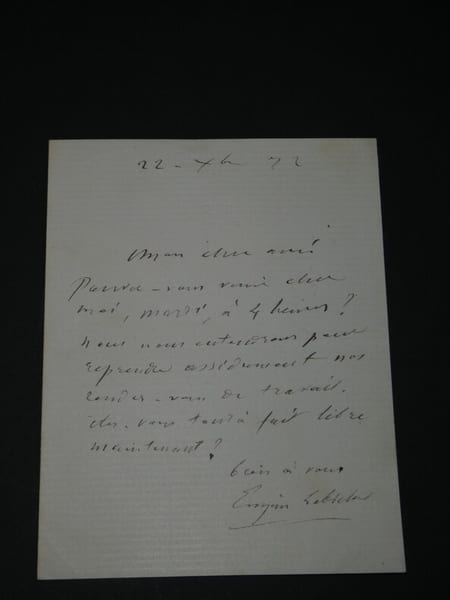 22 - Xbre 72
Mon cher ami
Pouvez-vous venir chez
moi, mardi, à 4 heures?
Nous nous entendrons pour
reprendre assidument nos
rendez-vous de travail.
Êtes-vous tout à fait libre
maintenant?
bien à vous
Eugène